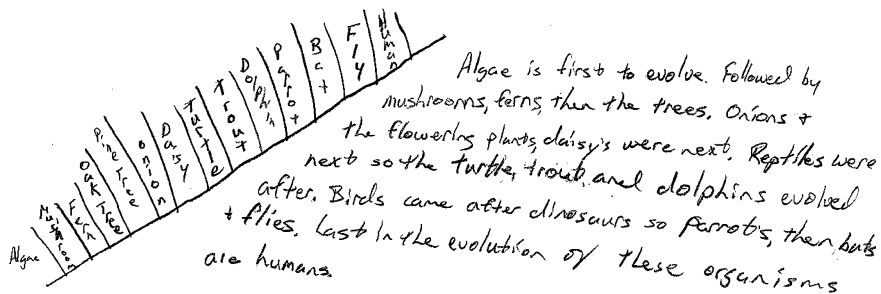 Algae
Mushroom
Fern
Oak Tree
Pine Tree
onion
Daisy
Turtle
Trout
Dolphin
Parrot
Bat
Fly
Human
Algae is first to evolve. Followed by
mushrooms, ferns, then the trees. Onions &
the flowering plants, daisy's were next. Reptiles were
next so the turtle, trout, and dolphins evolved
after. Birds came after dinosaurs so parrots, then bats
& flies. Last in the evolution of these organisms
are humans.